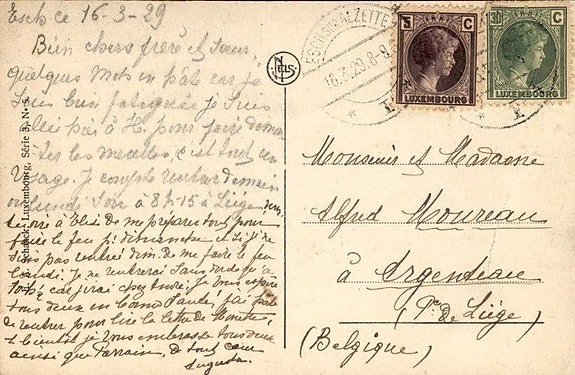 Esch ce 16-3-29
Bien chers frère et sœur,
Quelques mots en hâte car je
suis bien fatiguée je suis
pour faire
ter les c'est tout un
voyage. Je compte rentrer demain
ou lundi soir à 8 h 15 à Liège
dire à de me préparer tout pour
faire le feu p. dimanche si je ne
suis pas rentrée dim. de me faire le feu
lundi. Je ne rentrerai sans
car j'irai chez André. Je vous espère
tous deux en bonne santé, j'ai
de rentrer pour lire la lettre de
et bientôt je vous embrasse tous deux
ainsi que Parrain, de tout cœur
Augusta.
Schaack, Luxembourg, Série 3, No
NELS
ESCH-SUR-ALZETTE
16.3.29.8-9
5 C
LUXEMBOURG
C
LUXEMBOURG
Monsieur et Madame
Alfred Moureau
à Argenteau
(Pr. de Liège)
(Belgique)